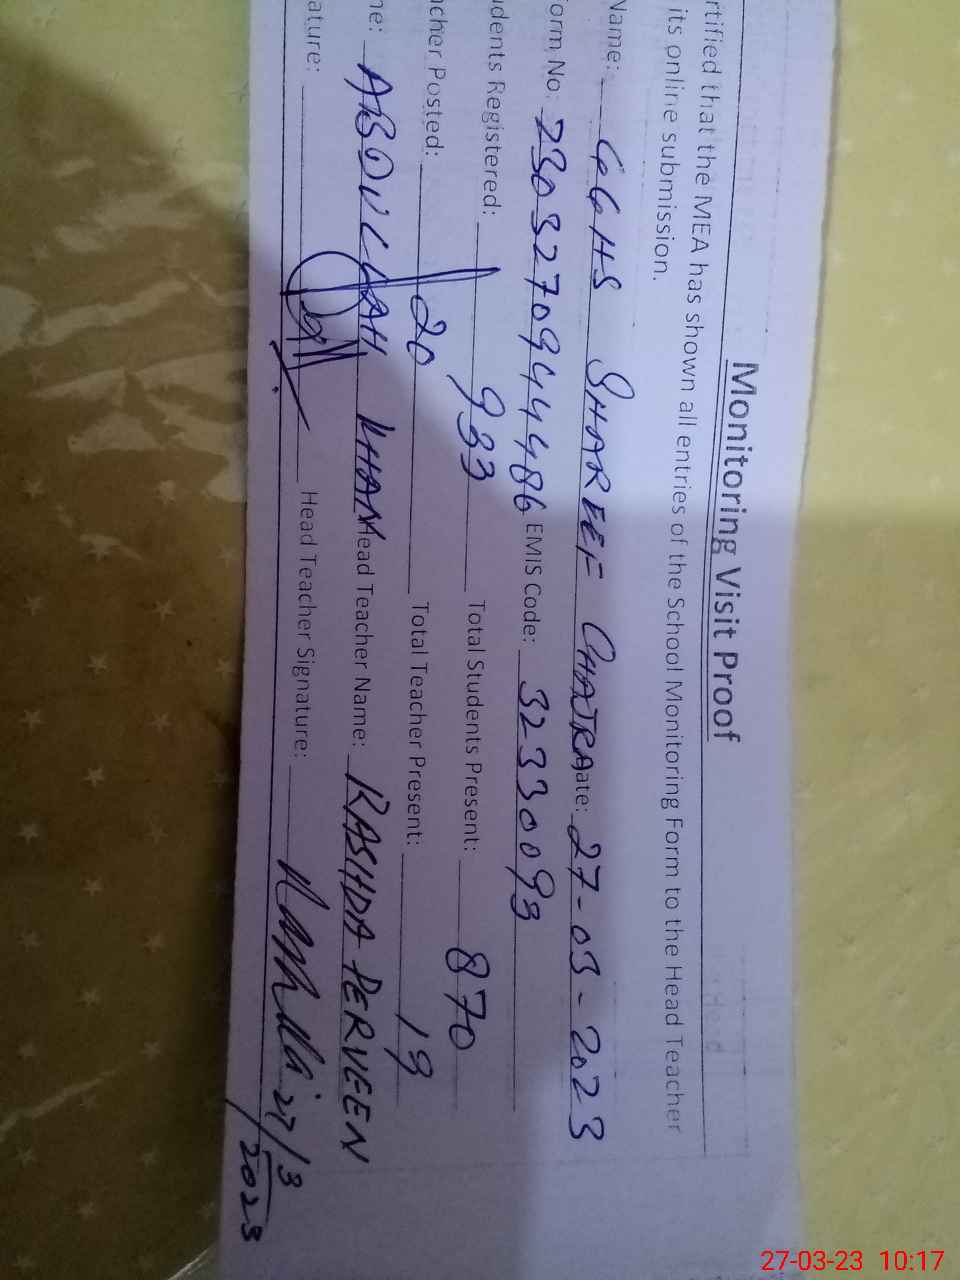 Monitoring Visit Proof
rtified that the MEA has shown all entries of the School Monitoring Form to the Head Teacher
its online submission.
Name: GGHS SHAREEF CHAJRA ate: 27-03-2023
orm No: 230327094444486 EMIS Code: 32330093
udents Registered: 933 Total Students Present: 870
acher Posted: 20 Total Teacher Present: 19
me: ABDULLAH KHAN Head Teacher Name: RASHDA PERVEEN
ature: Head Teacher Signature: 27/3/2023
27-03-23 10:17